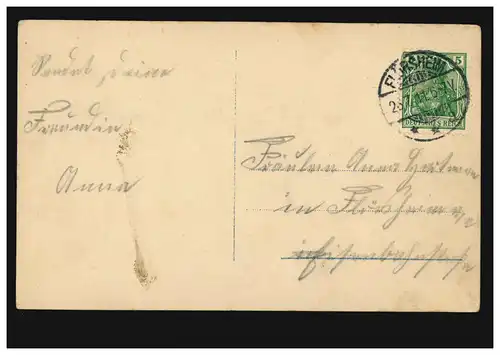 Sendet deine
Freundin
Anna
5
FLÖRSHEIM
DEUTSCHES REICH
Fräulein Anna Hartmann
in Flörsheim a/M
Eisenbahnstraße